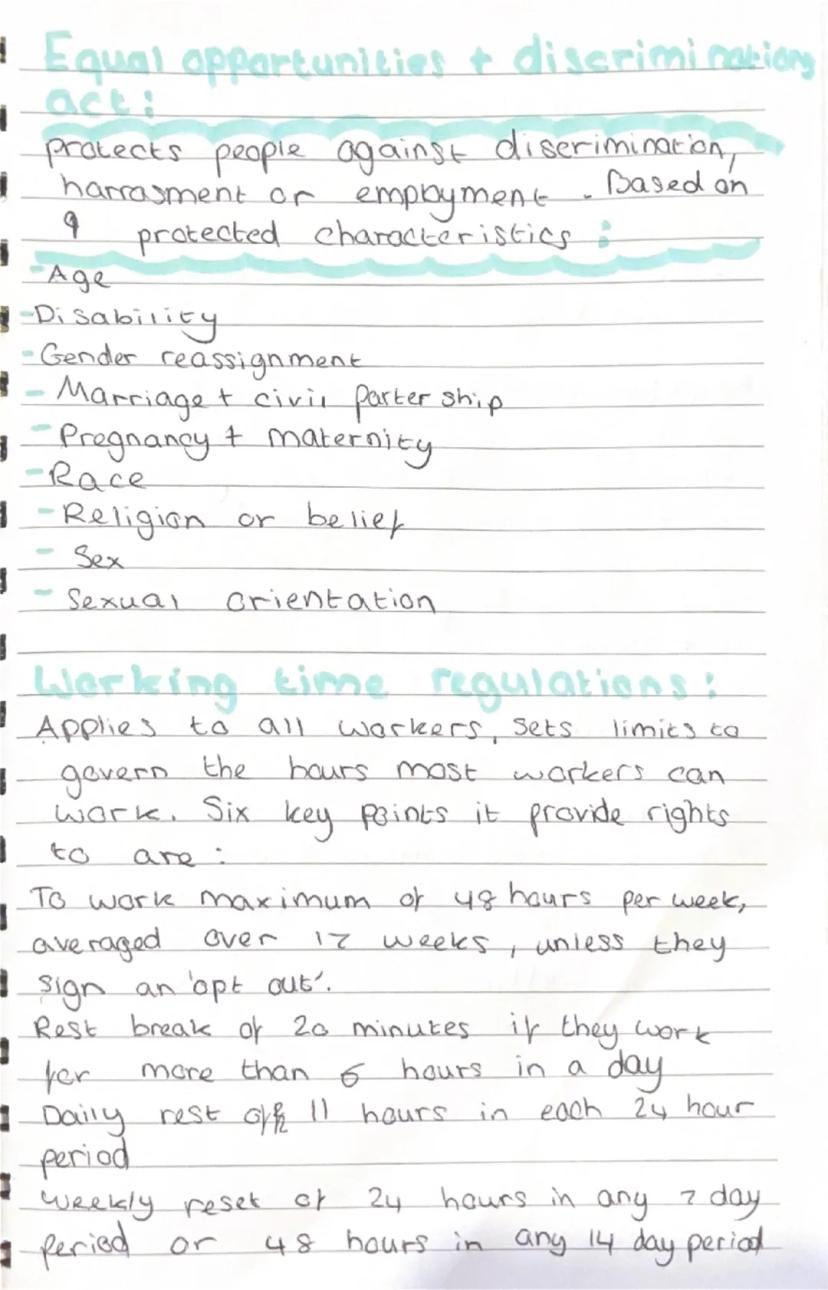 Equal opportunities + discriminations
act:
protects people against discrimination,
harrasment or employment. Based on
9 protected characteristics :
- Age
- Disability
- Gender reassignment
- Marriage + civil partership
- Pregnancy + maternity
- Race
- Religion or belief
- Sex
- Sexual orientation
Working time regulations:
Applies to all workers, sets limits to
govern the hours most workers can
work. Six key points it provide rights
to are :
To work maximum of 48 hours per week,
averaged over 17 weeks, unless they
sign an 'opt out'.
Rest break of 20 minutes if they work
for more than 6 hours in a day
Daily rest of 11 hours in each 24 hour
period
Weekly reset of 24 hours in any 7 day
period or 48 hours in any 14 day period